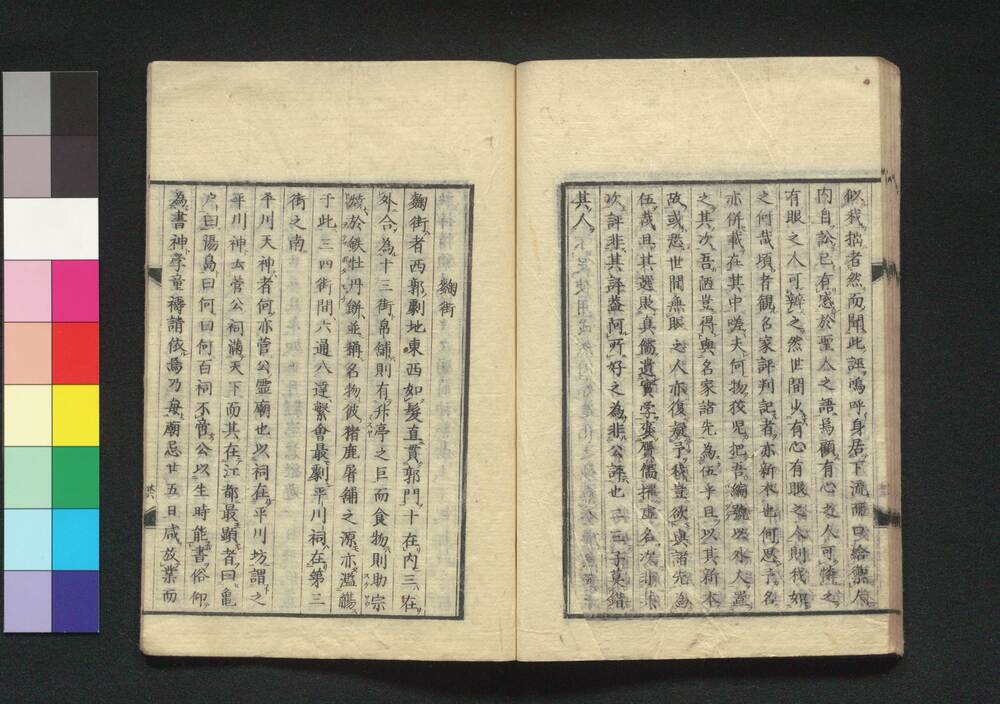 似我拙者然而聞此誣嗚呼身居下流而口給禦人
内自訟已有感於聖人之語為顧有心之人可憐之
有眼之人可辨之然世間少有心有眼之人則我如
之何哉頃者観名家評判記者亦新本也何思予名
亦併載在其中嗟夫何物狡児把吾編號以水人置
之其次吾酒豈得與名家諸先為伍乎且以其新本
故或恐世間無眼之人亦復疑予我豈欲與諸先為
伍哉且其選敗真儒遺實学変贋儒擢虚名次非其
次評非其評蓋阿所好之為非公評也二三子莫錯
其人
麹街
麹街者西郭劇地東西如髪直貫郭門十在内三在
外合為十三街帛舗則有舛亭之巨而食物則助宗
焼於鉄牡丹餅並稱名物彼猪鹿屠舗之源亦濫觴
于此三四街間六通八達繁會最劇平川祠在第三
街之南
平川天神者何亦菅公霊廟也以祠在平川坊謂之
平川神云菅公祠満天下而其在江都最顕者曰亀
戸曰湯島曰何曰何百祠不啻公以生時能書俗仰
為書神学童祷請依焉乃毎廟忌廿五日咸放業而